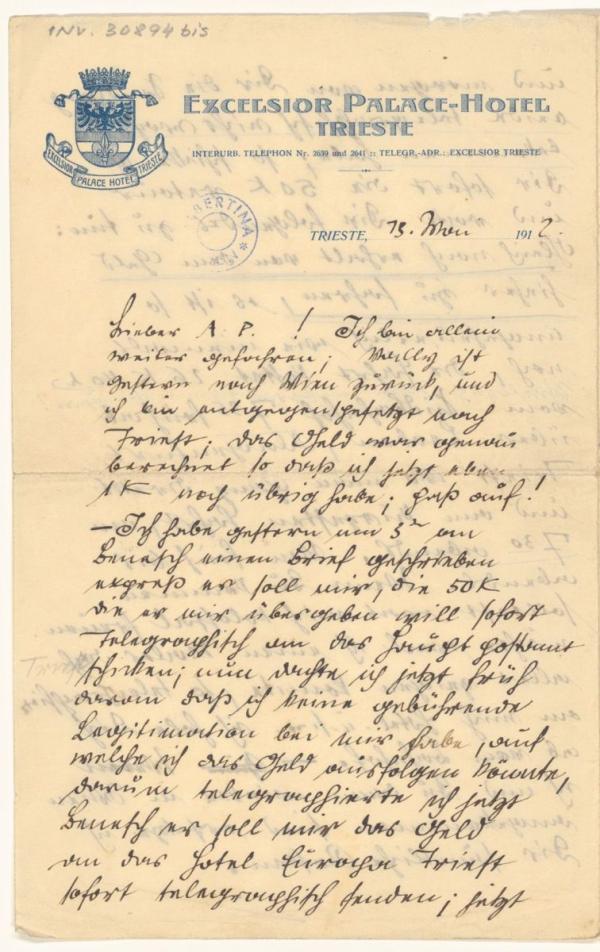 INV. 30894 bis
EXCELSIOR PALACE-HOTEL
TRIESTE
INTERURB. TELEPHON Nr. 2639 und 2641 :: TELEGR.-ADR.: EXCELSIOR TRIESTE
EXCELSIOR PALACE HOTEL TRIESTE
ALBERTINA
TRIESTE, 13. Mai 1912.
Lieber A. P. ! Ich bin allein
weiter gefahren; Wally ist
gestern nach Wien zurück, und
ich bin entgegengesetzt nach
Triest; das Geld war genau
berechnet so daß ich jetzt eben
1 K noch übrig habe; paß auf!
– Ich habe gestern um 5h an
Benesch einen Brief geschrieben
expreß er soll mir, die 50 K
die er mir übergeben will sofort
Telegraphisch an das Haupt postamt
schicken; nun dachte ich jetzt früh
daran daß ich keine gebührende
Legitimation bei mir habe, auf
welche ich das Geld ausfolgen könnte,
darum telegraphierte ich jetzt
Benesch er soll mir das Geld
an das Hotel Europa Triest
sofort telegraphisch senden; jetzt